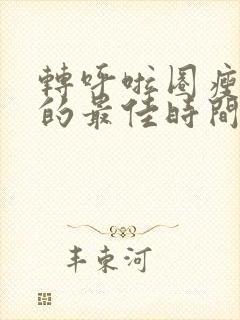 轉呼啦圈瘦
的最佳時間
丰東河